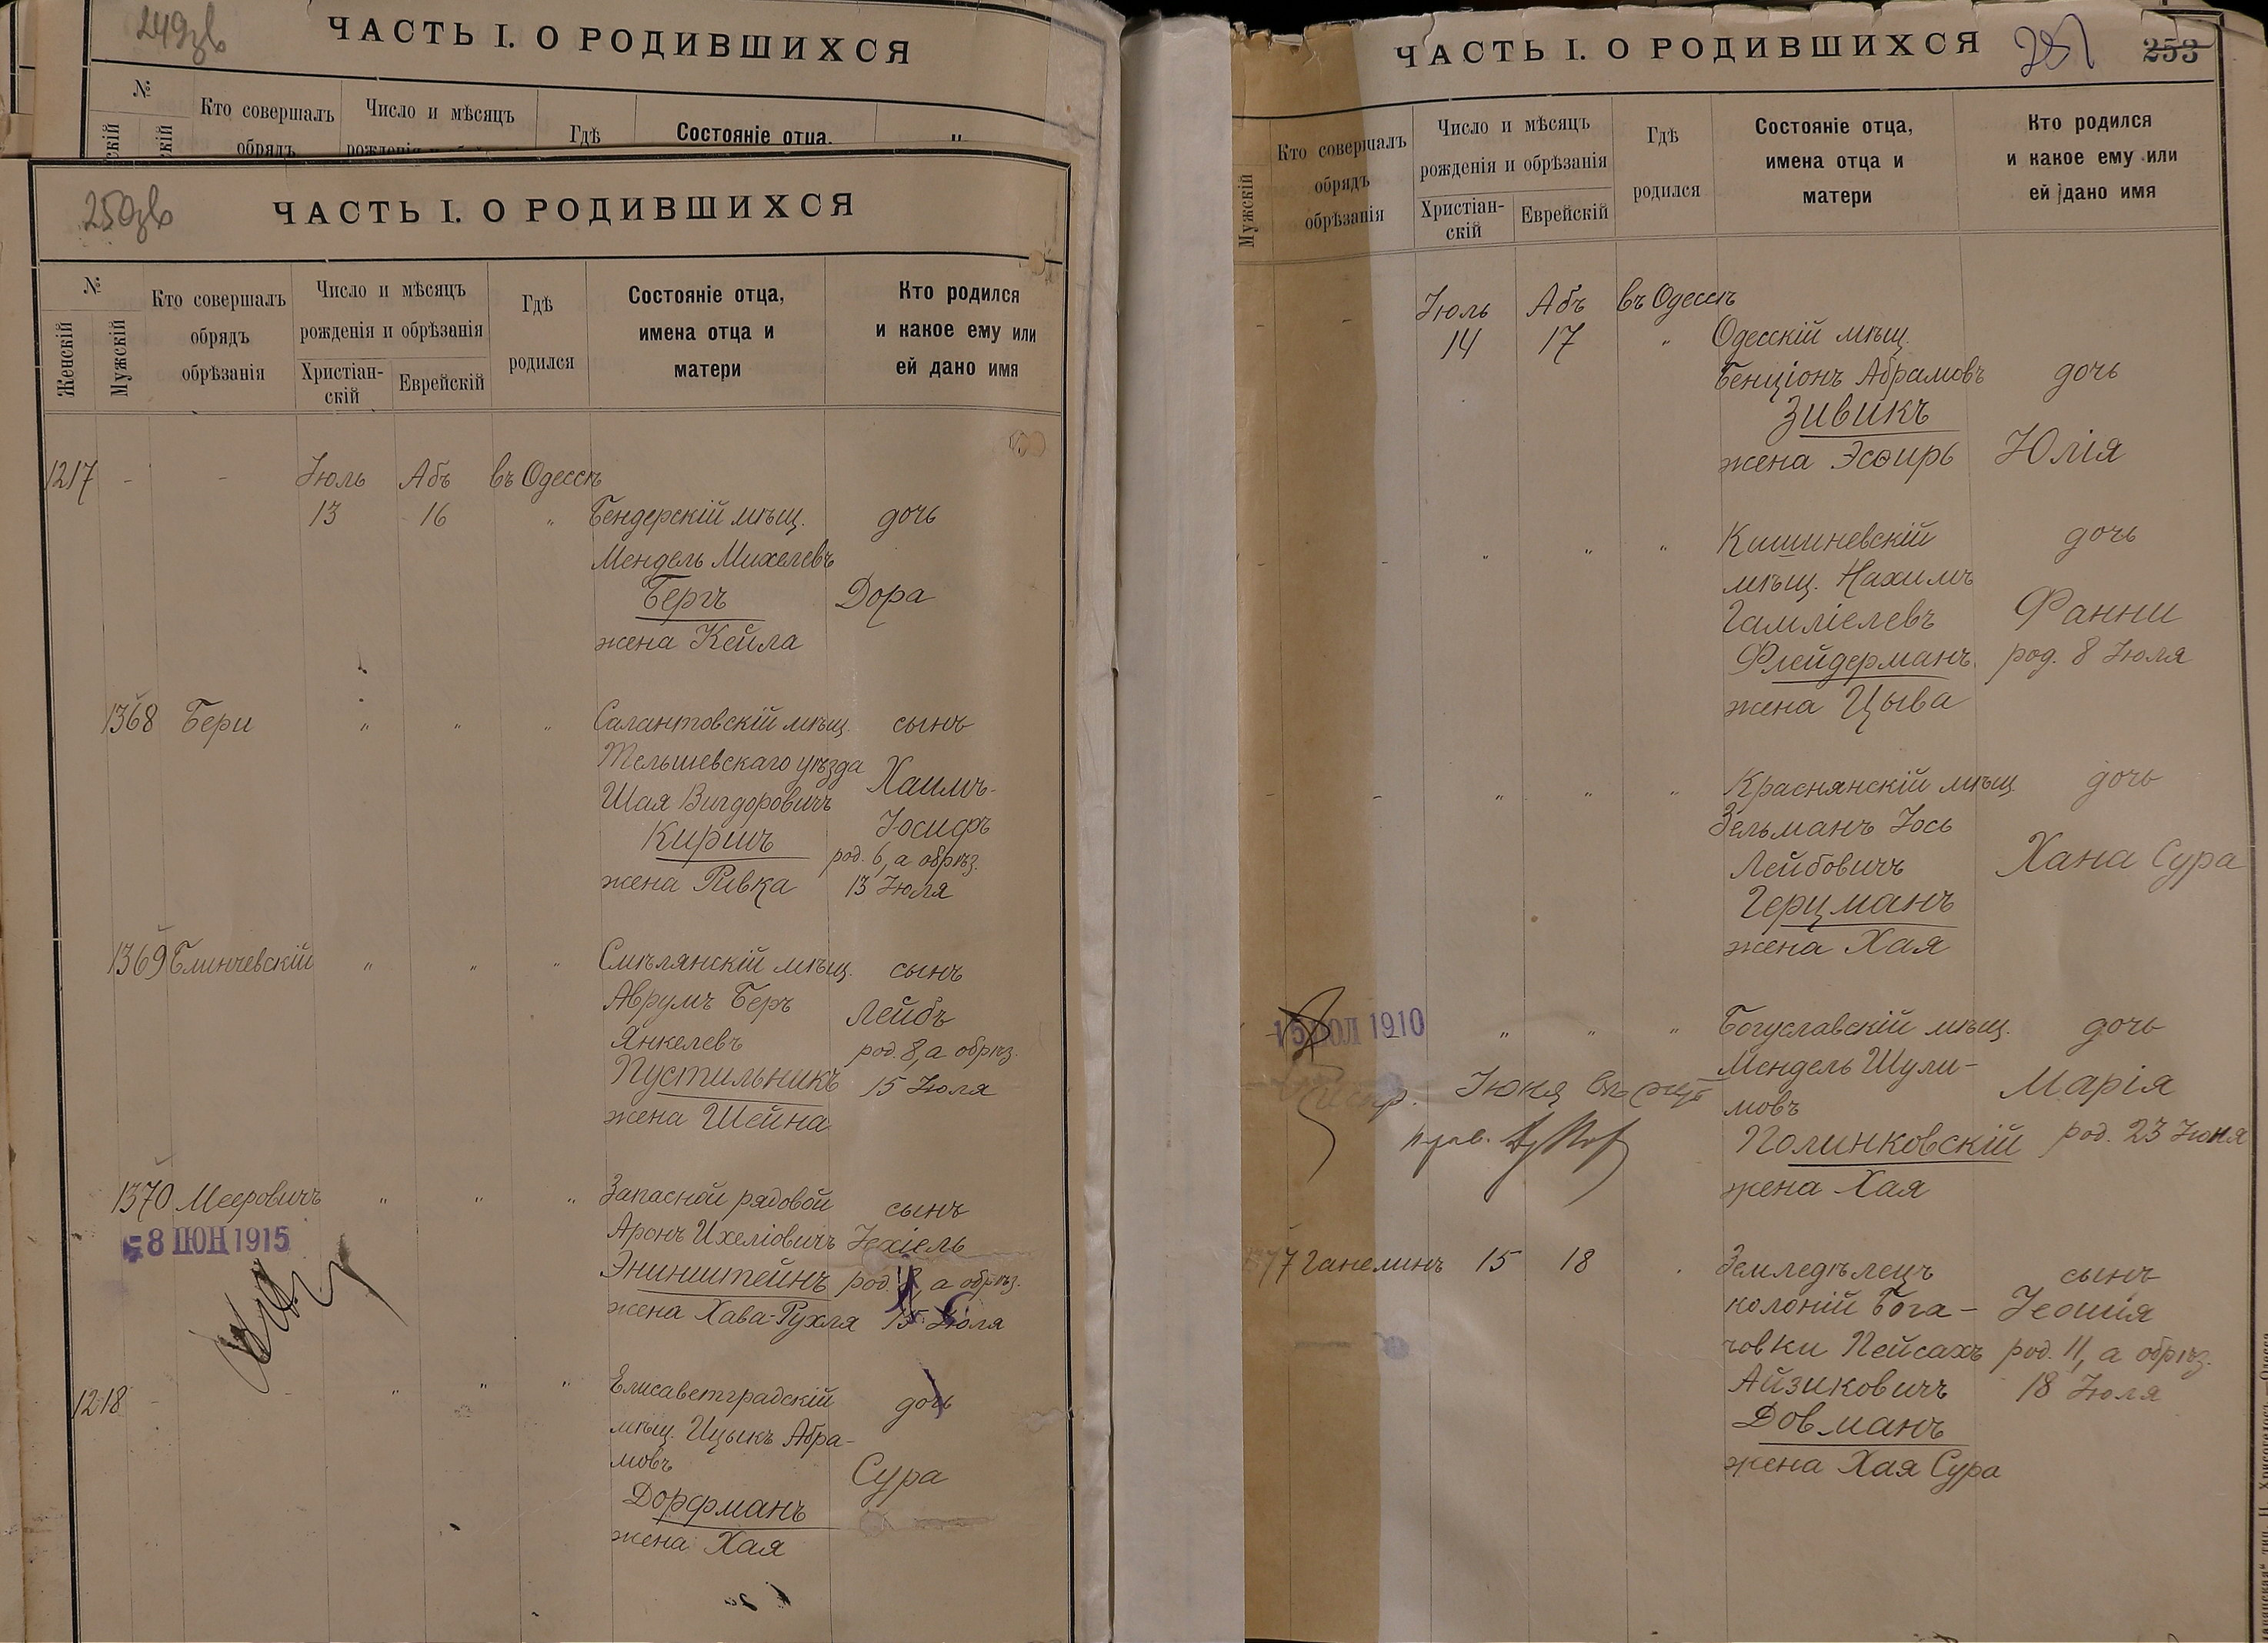 249зв
ЧАСТЬ I. О РОДИВШИХСЯ
№
Кто совершалъ
обрядъ
Число и мѣсяцъ
Гдѣ
Состояніе отца,
250зв
ЧАСТЬ I. О РОДИВШИХСЯ
№
Женскій
Мужскій
Кто совершалъ
обрядъ
обрѣзанія
Число и мѣсяцъ
рожденія и обрѣзанія
Христіан-
скій
Еврейскій
Гдѣ
родился
Состояніе отца,
имена отца и
матери
Кто родился
и какое ему или
ей дано имя
1217 - - Іюль Абъ въ Одессѣ
13 16 " Бендерскій мѣщ. дочь
Мендель Михелевъ
Бергъ Дора
жена Кейла
1368 Бери " " " Салантовскій мѣщ. сынъ
Тельшевскаго уѣзда
Хаимъ-
Шая Вигдоровичъ
Іосифъ
Киршъ
род. 6, а обрѣз.
жена Ривка 13 Іюля
1369 Блинчевскій " " " Смѣлянскій мѣщ. сынъ
Аврумъ Беръ Лейбъ
Янкелевъ род. 8, а обрѣз.
Пустильникъ 15 Іюля
жена Шейна
1370 Мееровичъ " " " Запасной рядовой сынъ
8 ІЮН 1915
Аронъ Ихеліовичъ Іехіель
Энинштейнъ род. 8, а обрѣз.
жена Хава-Рухля 15 Іюля
1218 - - " " " Елисаветградскій дочь
мѣщ. Ицыкъ Абра-
мовъ Сура
Дорфманъ
жена Хая
ЧАСТЬ I. О РОДИВШИХСЯ
251
253
Мужскій
Кто совершалъ
обрядъ
обрѣзанія
Число и мѣсяцъ
рожденія и обрѣзанія
Христіан-
скій
Еврейскій
Гдѣ
родился
Состояніе отца,
имена отца и
матери
Кто родился
и какое ему или
ей дано имя
- - Іюль Абъ въ Одессѣ
14 17 " Одесскій мѣщ.
Бенціонъ Абрамовъ дочь
Зивикъ
жена Эсѳирь Юлія
- - " " " Кишиневскій дочь
мѣщ. Нахимъ
Гамліелевъ Фанни
Флейдерманъ род. 8 Іюля
жена Цыва
- - " " " Краснянскій мѣщ. дочь
Зельманъ Іось
Лейбовичъ Хана Сура
Герцманъ
жена Хая
15 ІЮЛ 1910
" " " Богуславскій мѣщ. дочь
Мендель Шули-
мовъ Марія
Полинковскій род. 23 Іюня
жена Хая
Іюня
7 Ганелинъ 15 18 Земледѣлецъ сынъ
колоній Бога- Іеошія
човки Пейсахъ род. 11, а обрѣз.
Айзиковичъ 18 Іюля
Довманъ
жена Хая Сура